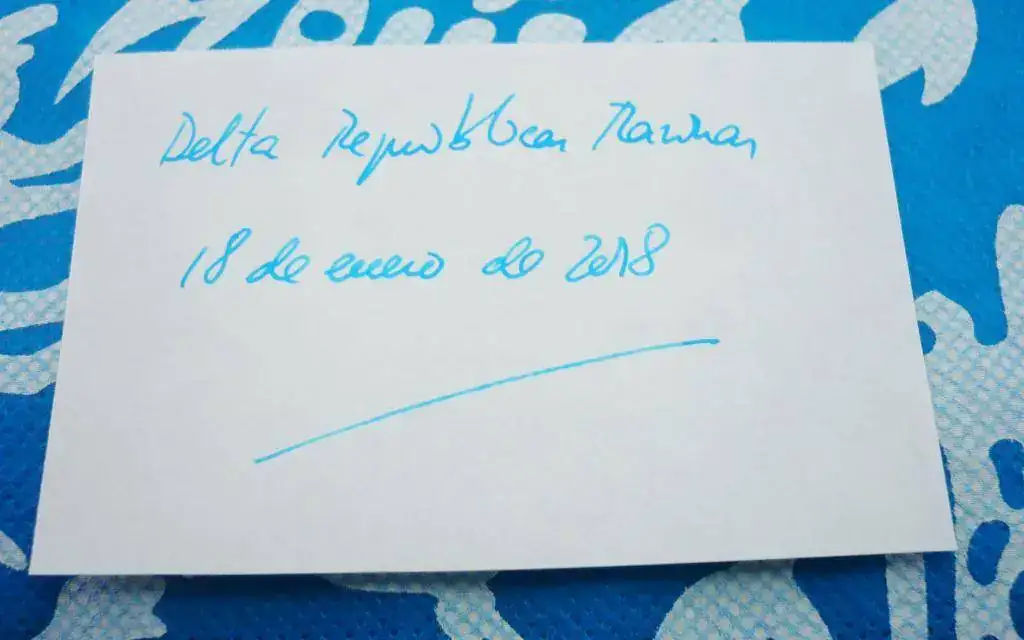 Delta Republican Marman
18 de enero de 2018